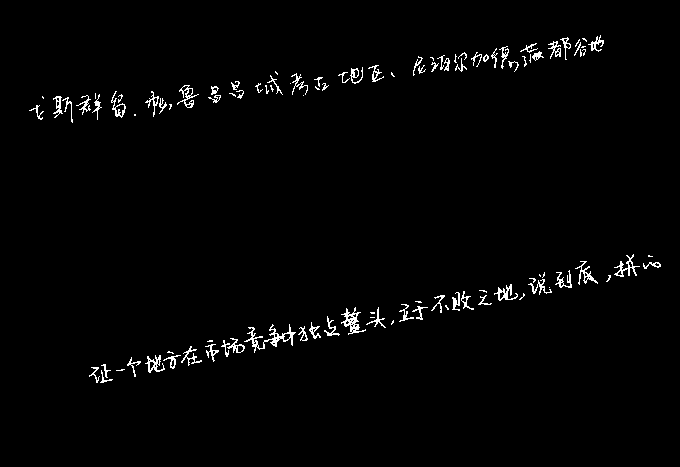 戈斯群岛、秘鲁昌昌城考古地区、尼泊尔加德满都谷地
让一个地方在市场竞争中独占鳌头,立于不败之地,说到底,拼的